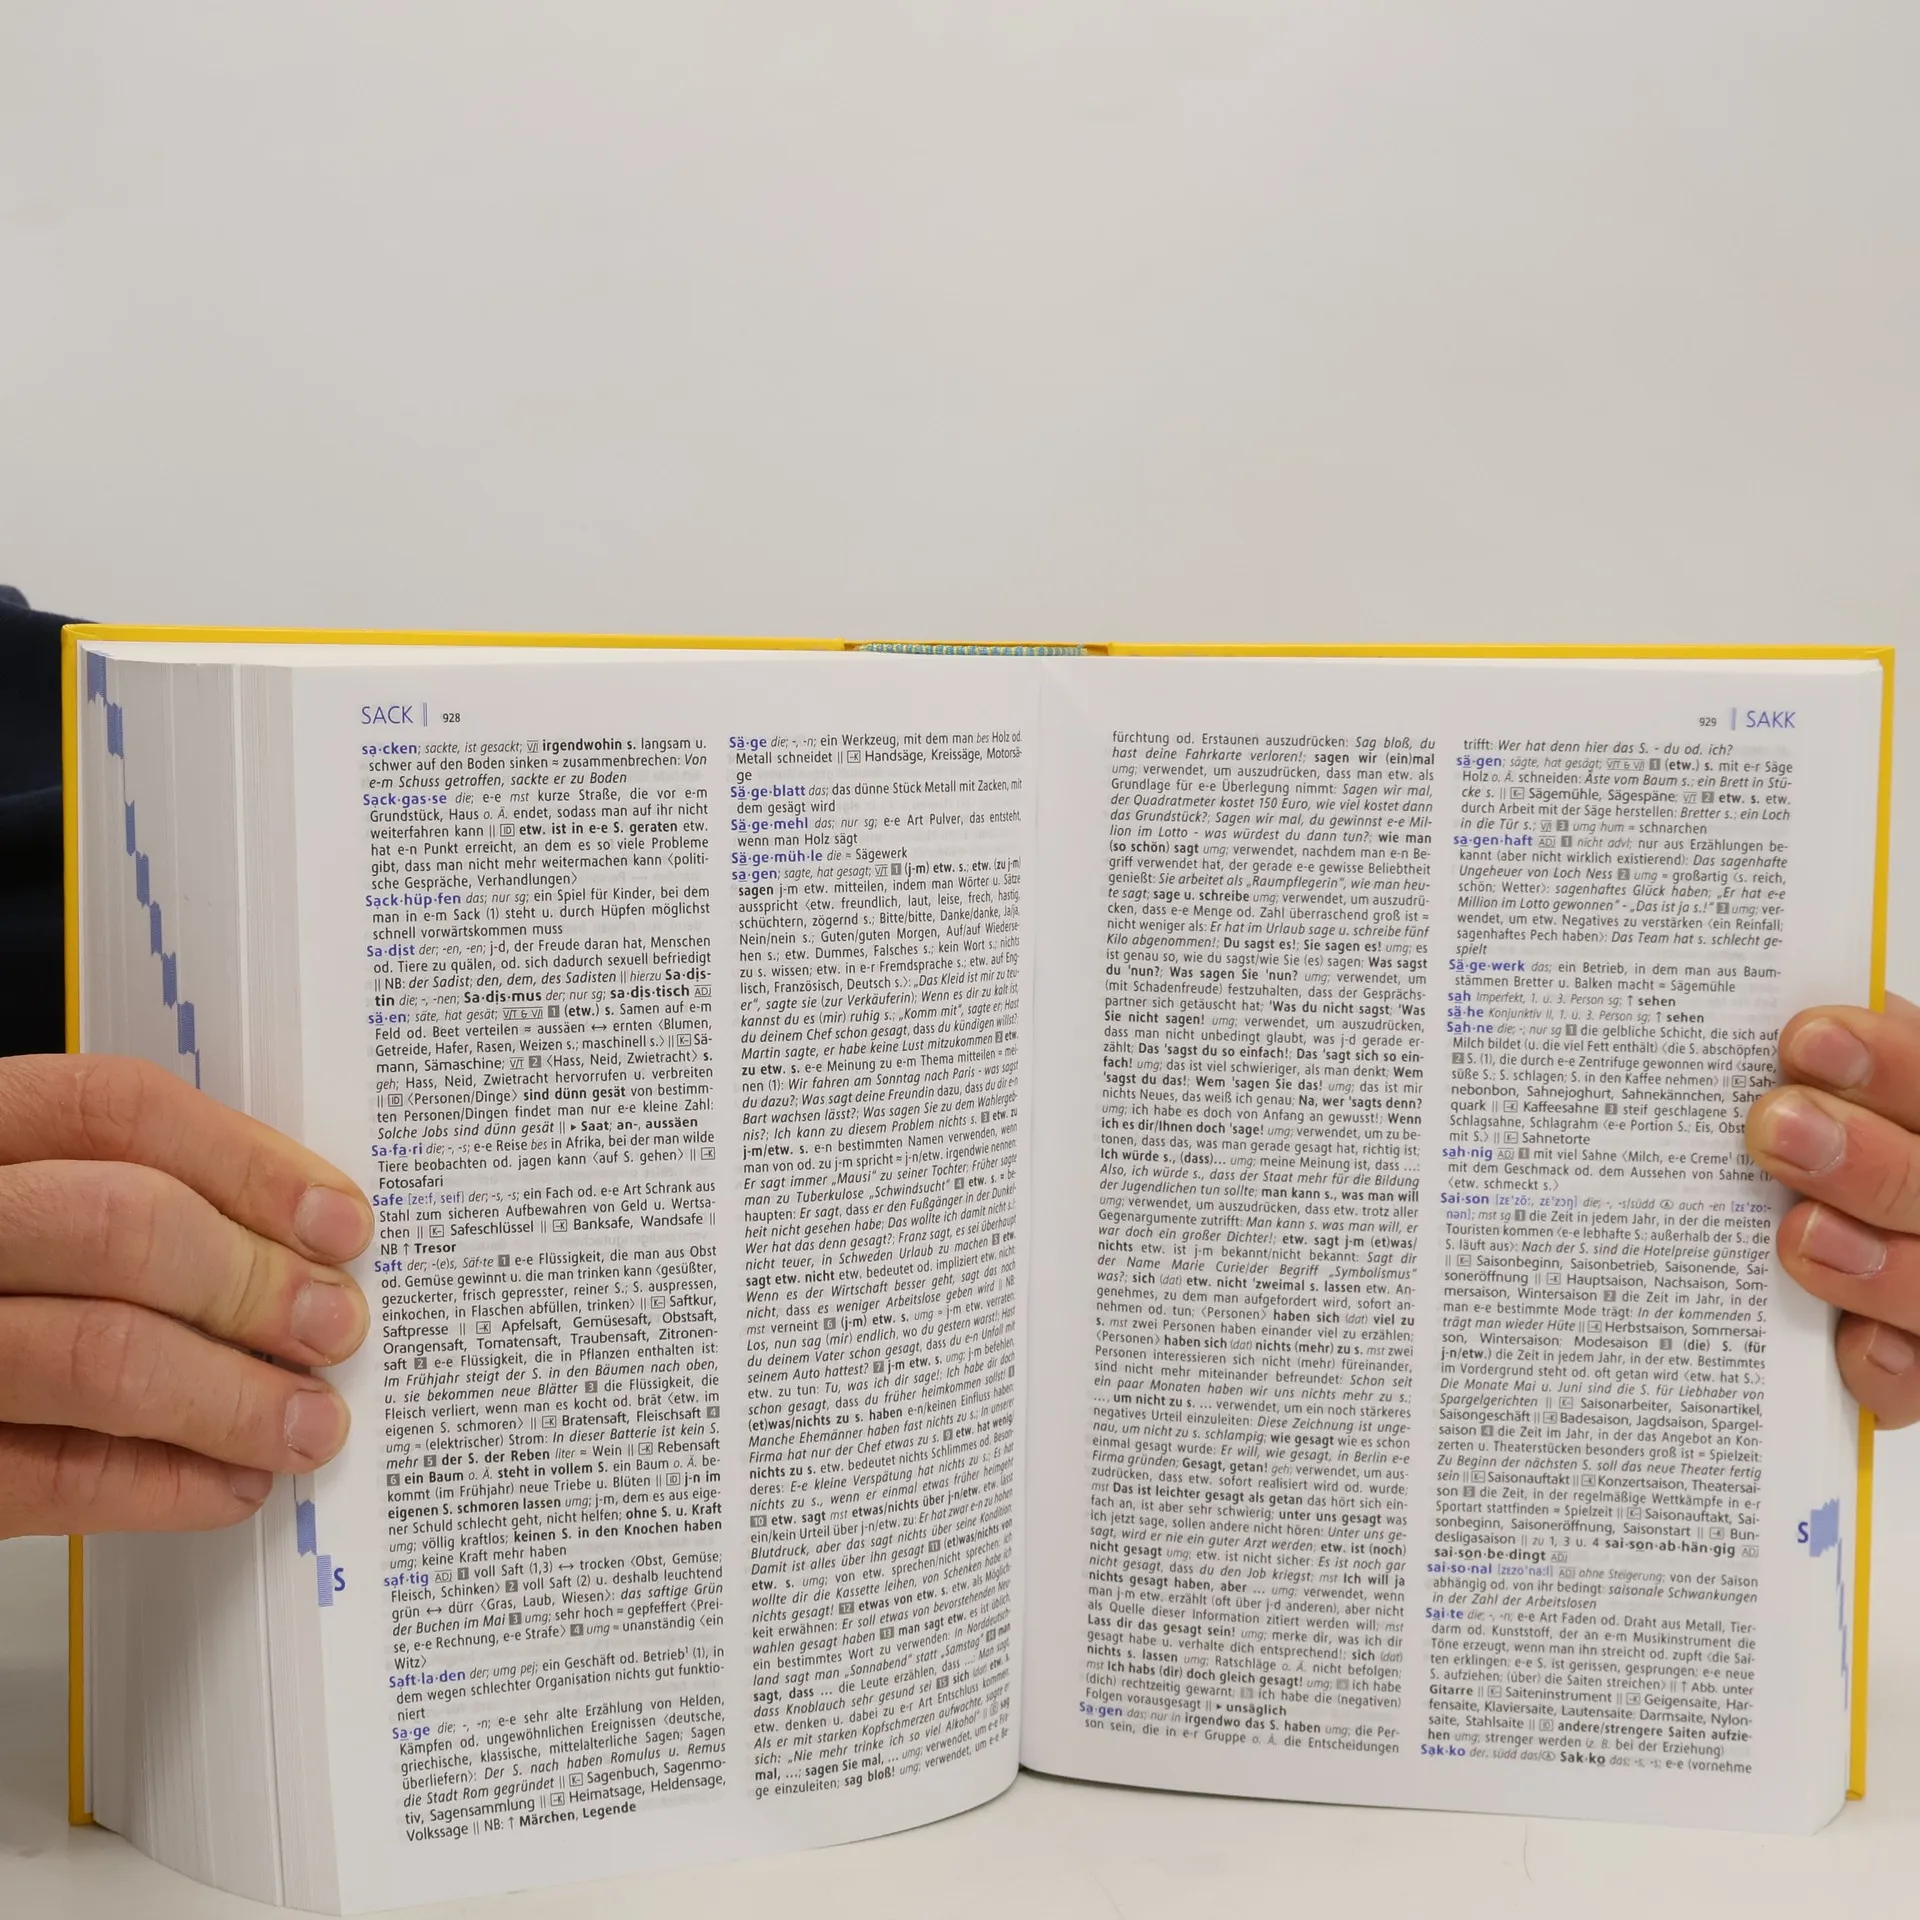 SACK 928
sa·cken; sackte, ist gesackt; V/I irgendwohin s. langsam u.
schwer auf den Boden sinken ≈ zusammenbrechen: Von
e-m Schuss getroffen, sackte er zu Boden
Sack·gas·se die; e-e mst kurze Straße, die vor e-m
Grundstück, Haus o. Ä. endet, sodass man auf ihr nicht
weiterfahren kann || ID etw. ist in e-e S. geraten etw.
hat e-n Punkt erreicht, an dem es so viele Probleme
gibt, dass man nicht mehr weitermachen kann ⟨politi-
sche Gespräche, Verhandlungen⟩
Sack·hüp·fen das; nur sg; ein Spiel für Kinder, bei dem
man in e-m Sack (1) steht u. durch Hüpfen möglichst
schnell vorwärtskommen muss
Sa·dist der; -en, -en; j-d, der Freude daran hat, Menschen
od. Tiere zu quälen, od. sich dadurch sexuell befriedigt
|| NB: der Sadist; den, dem, des Sadisten || hierzu Sa·dis-
tin die; -, -nen; Sa·dis·mus der; nur sg; sa·dis·tisch ADJ
sä·en; säte, hat gesät; V/T & V/I 1 (etw.) s. Samen auf e-m
Feld od. Beet verteilen ≈ aussäen ↔ ernten ⟨Blumen,
Getreide, Hafer, Rasen, Weizen s.; maschinell s.⟩ || K- Sä-
mann, Sämaschine; V/T 2 ⟨Hass, Neid, Zwietracht⟩ s.
geh; Hass, Neid, Zwietracht hervorrufen u. verbreiten
|| ID ⟨Personen/Dinge⟩ sind dünn gesät von bestimm-
ten Personen/Dingen findet man nur e-e kleine Zahl:
Solche Jobs sind dünn gesät || ▸ Saat; an-, aussäen
Sa·fa·ri die; -, -s; e-e Reise bes in Afrika, bei der man wilde
Tiere beobachten od. jagen kann ⟨auf S. gehen⟩ || -K
Fotosafari
Safe [ze:f, seif] der; -s, -s; ein Fach od. e-e Art Schrank aus
Stahl zum sicheren Aufbewahren von Geld u. Wertsa-
chen || K- Safeschlüssel || -K Banksafe, Wandsafe ||
NB ↑ Tresor
Saft der; -(e)s, Säf·te 1 e-e Flüssigkeit, die man aus Obst
od. Gemüse gewinnt u. die man trinken kann ⟨gesüßter,
gezuckerter, frisch gepresster, reiner S.; S. auspressen,
einkochen, in Flaschen abfüllen, trinken⟩ || K- Saftkur,
Saftpresse || -K Apfelsaft, Gemüsesaft, Obstsaft,
Orangensaft, Tomatensaft, Traubensaft, Zitronen-
saft 2 e-e Flüssigkeit, die in Pflanzen enthalten ist:
Im Frühjahr steigt der S. in den Bäumen nach oben,
u. sie bekommen neue Blätter 3 die Flüssigkeit, die
Fleisch verliert, wenn man es kocht od. brät ⟨etw. im
eigenen S. schmoren⟩ || -K Bratensaft, Fleischsaft 4
umg ≈ (elektrischer) Strom: In dieser Batterie ist kein S.
mehr 5 der S. der Reben liter ≈ Wein || -K Rebensaft
6 ein Baum o. Ä. steht in vollem S. ein Baum o. Ä. be-
kommt (im Frühjahr) neue Triebe u. Blüten || ID j-n im
eigenen S. schmoren lassen umg; j-m, dem es aus eige-
ner Schuld schlecht geht, nicht helfen; ohne S. u. Kraft
umg; völlig kraftlos; keinen S. in den Knochen haben
umg; keine Kraft mehr haben
saf·tig ADJ 1 voll Saft (1,3) ↔ trocken ⟨Obst, Gemüse;
Fleisch, Schinken⟩ 2 voll Saft (2) u. deshalb leuchtend
grün ↔ dürr ⟨Gras, Laub, Wiesen⟩: das saftige Grün
der Buchen im Mai 3 umg; sehr hoch ≈ gepfeffert ⟨Prei-
se, e-e Rechnung, e-e Strafe⟩ 4 umg ≈ unanständig ⟨ein
Witz⟩
Saft·la·den der; umg pej; ein Geschäft od. Betrieb¹ (1), in
dem wegen schlechter Organisation nichts gut funktio-
niert
Sa·ge die; -, -n; e-e sehr alte Erzählung von Helden,
Kämpfen od. ungewöhnlichen Ereignissen ⟨deutsche,
griechische, klassische, mittelalterliche Sagen; Sagen
überliefern⟩: Der S. nach haben Romulus u. Remus
die Stadt Rom gegründet || K- Sagenbuch, Sagenmo-
tiv, Sagensammlung || -K Heimatsage, Heldensage,
Volkssage || NB: ↑ Märchen, Legende
S
Sä·ge die; -, -n; ein Werkzeug, mit dem man bes Holz od.
Metall schneidet || -K Handsäge, Kreissäge, Motorsä-
ge
Sä·ge·blatt das; das dünne Stück Metall mit Zacken, mit
dem gesägt wird
Sä·ge·mehl das; nur sg; e-e Art Pulver, das entsteht,
wenn man Holz sägt
Sä·ge·müh·le die ≈ Sägewerk
sa·gen; sagte, hat gesagt; V/T 1 (j-m) etw. s.; etw. (zu j-m)
sagen j-m etw. mitteilen, indem man Wörter u. Sätze
ausspricht ⟨etw. freundlich, laut, leise, frech, hastig,
schüchtern, zögernd s.; Bitte/bitte, Danke/danke, Ja/ja,
Nein/nein s.; Guten/guten Morgen, Auf/auf Wiederse-
hen s.; etw. Dummes, Falsches s.; kein Wort s.; nichts
zu s. wissen; etw. in e-r Fremdsprache s.; etw. auf Eng-
lisch, Französisch, Deutsch s.⟩: „Das Kleid ist mir zu teu-
er“, sagte sie (zur Verkäuferin); Wenn es dir zu kalt ist,
kannst du es (mir) ruhig s.; „Komm mit“, sagte er; Hast
du deinem Chef schon gesagt, dass du kündigen willst?;
Martin sagte, er habe keine Lust mitzukommen 2 etw.
zu etw. s. e-e Meinung zu e-m Thema mitteilen ≈ mei-
nen (1): Wir fahren am Sonntag nach Paris - was sagst
du dazu?; Was sagt deine Freundin dazu, dass du dir e-n
Bart wachsen lässt?; Was sagen Sie zu dem Wahlergeb-
nis?; Ich kann zu diesem Problem nichts s. 3 etw. zu
j-m/etw. s. e-n bestimmten Namen verwenden, wenn
man von od. zu j-m spricht ≈ j-n/etw. irgendwie nennen:
Er sagt immer „Mausi“ zu seiner Tochter; Früher sagte
man zu Tuberkulose „Schwindsucht“ 4 etw. s. ≈ be-
haupten: Er sagt, dass er den Fußgänger in der Dunkel-
heit nicht gesehen habe; Das wollte ich damit nicht s.!;
Wer hat das denn gesagt?; Franz sagt, es sei überhaupt
nicht teuer, in Schweden Urlaub zu machen 5 etw.
sagt etw. nicht etw. bedeutet od. impliziert etw. nicht:
Wenn es der Wirtschaft besser geht, sagt das noch
nicht, dass es weniger Arbeitslose geben wird || NB:
mst verneint 6 (j-m) etw. s. umg ≈ j-m etw. verraten:
Los, nun sag (mir) endlich, wo du gestern warst!; Hast
du deinem Vater schon gesagt, dass du e-n Unfall mit
seinem Auto hattest? 7 j-m etw. s. umg; j-m befehlen,
etw. zu tun: Tu, was ich dir sage!; Ich habe dir doch
schon gesagt, dass du früher heimkommen sollst!
(et)was/nichts zu s. haben e-n/keinen Einfluss haben:
Manche Ehemänner haben fast nichts zu s.; In unserer
Firma hat nur der Chef etwas zu s. 9 etw. hat wenig/
nichts zu s. etw. bedeutet nichts Schlimmes od. Beson-
deres: E-e kleine Verspätung hat nichts zu s.; Es hat
nichts zu s., wenn er einmal etwas früher heimgeht
10 etw. sagt mst etwas/nichts über j-n/etw. etw. lässt
ein/kein Urteil über j-n/etw. zu: Er hat zwar e-n zu hohen
Blutdruck, aber das sagt nichts über seine Kondition;
Damit ist alles über ihn gesagt 11 (et)was/nichts von
etw. s. umg; von etw. sprechen/nicht sprechen: Ich
wollte dir die Kassette leihen, von Schenken habe ich
nichts gesagt! 12 etwas von etw. s. etw. als Möglich-
keit erwähnen: Er soll etwas von bevorstehenden Neu-
wahlen gesagt haben 13 man sagt etw. es ist üblich,
ein bestimmtes Wort zu verwenden: In Norddeutsch-
land sagt man „Sonnabend“ statt „Samstag“ 14 man
sagt, dass ... die Leute erzählen, dass ...: Man sagt,
dass Knoblauch sehr gesund sei 15 sich (dat) etw. s.
etw. denken u. dabei zu e-r Art Entschluss kommen:
Als er mit starken Kopfschmerzen aufwachte, sagte er
sich: „Nie mehr trinke ich so viel Alkohol“ || ID sag
mal, ...; sagen Sie mal, ... umg; verwendet, um e-e Fra-
ge einzuleiten; sag bloß! umg; verwendet, um e-e Be-
929 SAKK
fürchtung od. Erstaunen auszudrücken: Sag bloß, du
hast deine Fahrkarte verloren!; sagen wir (ein)mal
umg; verwendet, um auszudrücken, dass man etw. als
Grundlage für e-e Überlegung nimmt: Sagen wir mal,
der Quadratmeter kostet 150 Euro, wie viel kostet dann
das Grundstück?; Sagen wir mal, du gewinnst e-e Mil-
lion im Lotto - was würdest du dann tun?; wie man
(so schön) sagt umg; verwendet, nachdem man e-n Be-
griff verwendet hat, der gerade e-e gewisse Beliebtheit
genießt: Sie arbeitet als „Raumpflegerin“, wie man heu-
te sagt; sage u. schreibe umg; verwendet, um auszudrü-
cken, dass e-e Menge od. Zahl überraschend groß ist ≈
nicht weniger als: Er hat im Urlaub sage u. schreibe fünf
Kilo abgenommen!; Du sagst es!; Sie sagen es! umg; es
ist genau so, wie du sagst/wie Sie (es) sagen; Was sagst
du 'nun?; Was sagen Sie 'nun? umg; verwendet, um
(mit Schadenfreude) festzuhalten, dass der Gesprächs-
partner sich getäuscht hat; 'Was du nicht sagst; 'Was
Sie nicht sagen! umg; verwendet, um auszudrücken,
dass man nicht unbedingt glaubt, was j-d gerade er-
zählt; Das 'sagst du so einfach!; Das 'sagt sich so ein-
fach! umg; das ist viel schwieriger, als man denkt; Wem
'sagst du das!; Wem 'sagen Sie das! umg; das ist mir
nichts Neues, das weiß ich genau; Na, wer 'sagts denn?
umg; ich habe es doch von Anfang an gewusst!; Wenn
ich es dir/Ihnen doch 'sage! umg; verwendet, um zu be-
tonen, dass das, was man gerade gesagt hat, richtig ist;
Ich würde s., (dass)... umg; meine Meinung ist, dass ...:
Also, ich würde s., dass der Staat mehr für die Bildung
der Jugendlichen tun sollte; man kann s., was man will
umg; verwendet, um auszudrücken, dass etw. trotz aller
Gegenargumente zutrifft: Man kann s. was man will, er
war doch ein großer Dichter!; etw. sagt j-m (et)was/
nichts etw. ist j-m bekannt/nicht bekannt: Sagt dir
der Name Marie Curie/der Begriff „Symbolismus“
was?; sich (dat) etw. nicht 'zweimal s. lassen etw. An-
genehmes, zu dem man aufgefordert wird, sofort an-
nehmen od. tun; ⟨Personen⟩ haben sich (dat) viel zu
s. mst zwei Personen haben einander viel zu erzählen;
⟨Personen⟩ haben sich (dat) nichts (mehr) zu s. mst zwei
Personen interessieren sich nicht (mehr) füreinander,
sind nicht mehr miteinander befreundet: Schon seit
ein paar Monaten haben wir uns nichts mehr zu s.;
..., um nicht zu s. ... verwendet, um ein noch stärkeres
negatives Urteil einzuleiten: Diese Zeichnung ist unge-
nau, um nicht zu s. schlampig; wie gesagt wie es schon
einmal gesagt wurde: Er will, wie gesagt, in Berlin e-e
Firma gründen; Gesagt, getan! geh; verwendet, um aus-
zudrücken, dass etw. sofort realisiert wird od. wurde;
mst Das ist leichter gesagt als getan das hört sich ein-
fach an, ist aber sehr schwierig; unter uns gesagt was
ich jetzt sage, sollen andere nicht hören: Unter uns ge-
sagt, wird er nie ein guter Arzt werden; etw. ist (noch)
nicht gesagt umg; etw. ist nicht sicher: Es ist noch gar
nicht gesagt, dass du den Job kriegst; mst Ich will ja
nichts gesagt haben, aber ... umg; verwendet, wenn
man j-m etw. erzählt (oft über j-d anderen), aber nicht
als Quelle dieser Information zitiert werden will; mst
Lass dir das gesagt sein! umg; merke dir, was ich dir
gesagt habe u. verhalte dich entsprechend!; sich (dat)
nichts s. lassen umg; Ratschläge o. Ä. nicht befolgen;
mst Ich habs (dir) doch gleich gesagt! umg; a ich habe
(dich) rechtzeitig gewarnt; b ich habe die (negativen)
Folgen vorausgesagt || ▸ unsäglich
Sa·gen das; nur in irgendwo das S. haben umg; die Per-
son sein, die in e-r Gruppe o. Ä. die Entscheidungen
trifft: Wer hat denn hier das S. - du od. ich?
sä·gen; sägte, hat gesägt; V/T & V/I 1 (etw.) s. mit e-r Säge
Holz o. Ä. schneiden: Äste vom Baum s.; ein Brett in Stü-
cke s. || K- Sägemühle, Sägespäne; V/T 2 etw. s. etw.
durch Arbeit mit der Säge herstellen: Bretter s.; ein Loch
in die Tür s.; V/I 3 umg hum ≈ schnarchen
sa·gen·haft ADJ 1 nicht adv; nur aus Erzählungen be-
kannt (aber nicht wirklich existierend): Das sagenhafte
Ungeheuer von Loch Ness 2 umg ≈ großartig ⟨s. reich,
schön; Wetter⟩: sagenhaftes Glück haben; „Er hat e-e
Million im Lotto gewonnen“ - „Das ist ja s.!“ 3 umg; ver-
wendet, um etw. Negatives zu verstärken ⟨ein Reinfall;
sagenhaftes Pech haben⟩: Das Team hat s. schlecht ge-
spielt
Sä·ge·werk das; ein Betrieb, in dem man aus Baum-
stämmen Bretter u. Balken macht ≈ Sägemühle
sah Imperfekt, 1. u. 3. Person sg; ↑ sehen
sä·he Konjunktiv II, 1. u. 3. Person sg; ↑ sehen
Sah·ne die; -; nur sg 1 die gelbliche Schicht, die sich auf
Milch bildet (u. die viel Fett enthält) ⟨die S. abschöpfen⟩
2 S. (1), die durch e-e Zentrifuge gewonnen wird ⟨saure,
süße S.; S. schlagen; S. in den Kaffee nehmen⟩ || K- Sah-
nebonbon, Sahnejoghurt, Sahnekännchen,
quark || -K Kaffeesahne 3 steif geschlagene S.
Schlagsahne, Schlagrahm ⟨e-e Portion S.; Eis, Obst
mit S.⟩ || K- Sahnetorte
sah·nig ADJ 1 mit viel Sahne ⟨Milch, e-e Creme¹ (1)⟩
mit dem Geschmack od. dem Aussehen von Sahne (1)
⟨etw. schmeckt s.⟩
Sai·son [zɛˈzõː, zɛˈzɔŋ] die; -, -s/südd Ⓐ auch -en [zɛˈzoː-
nən]; mst sg 1 die Zeit in jedem Jahr, in der die meisten
Touristen kommen ⟨e-e lebhafte S.; außerhalb der S.; die
S. läuft aus⟩: Nach der S. sind die Hotelpreise günstiger
|| K- Saisonbeginn, Saisonbetrieb, Saisonende, Sai-
soneröffnung || -K Hauptsaison, Nachsaison, Som-
mersaison, Wintersaison 2 die Zeit im Jahr, in der
man e-e bestimmte Mode trägt: In der kommenden S.
trägt man wieder Hüte || -K Herbstsaison, Sommersai-
son, Wintersaison; Modesaison 3 (die) S. (für
j-n/etw.) die Zeit in jedem Jahr, in der etw. Bestimmtes
im Vordergrund steht od. oft getan wird ⟨etw. hat S.⟩:
Die Monate Mai u. Juni sind die S. für Liebhaber von
Spargelgerichten || K- Saisonarbeiter, Saisonartikel,
Saisongeschäft || -K Badesaison, Jagdsaison, Spargel-
saison 4 die Zeit im Jahr, in der das Angebot an Kon-
zerten u. Theaterstücken besonders groß ist ≈ Spielzeit:
Zu Beginn der nächsten S. soll das neue Theater fertig
sein || K- Saisonauftakt || -K Konzertsaison, Theatersai-
son 5 die Zeit, in der regelmäßige Wettkämpfe in e-r
Sportart stattfinden ≈ Spielzeit || K- Saisonauftakt, Sai-
sonbeginn, Saisoneröffnung, Saisonstart || -K Bun-
desligasaison || zu 1, 3 u. 4 sai·son·ab·hän·gig ADJ
sai·son·be·dingt ADJ
sai·so·nal [zɛzoˈnaːl] ADJ ohne Steigerung; von der Saison
abhängig od. von ihr bedingt: saisonale Schwankungen
in der Zahl der Arbeitslosen
Sai·te die; -, -n; e-e Art Faden od. Draht aus Metall, Tier-
darm od. Kunststoff, der an e-m Musikinstrument die
Töne erzeugt, wenn man ihn streicht od. zupft ⟨die Sai-
ten erklingen; e-e S. ist gerissen, gesprungen; e-e neue
S. aufziehen; (über) die Saiten streichen⟩ || ↑ Abb. unter
Gitarre || K- Saiteninstrument || -K Geigensaite, Har-
fensaite, Klaviersaite, Lautensaite; Darmsaite, Nylon-
saite, Stahlsaite || ID andere/strengere Saiten aufzie-
hen umg; strenger werden (z. B. bei der Erziehung)
Sak·ko der, südd das/Ⓐ Sak·ko das; -s, -s; e-e (vornehme
S